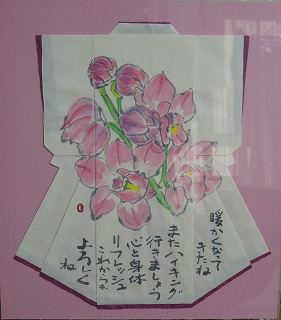 暖かくなって
きたね
またハイキング
行きましょう
心と身体
リフレッシュ
これからも
よろしく
ね